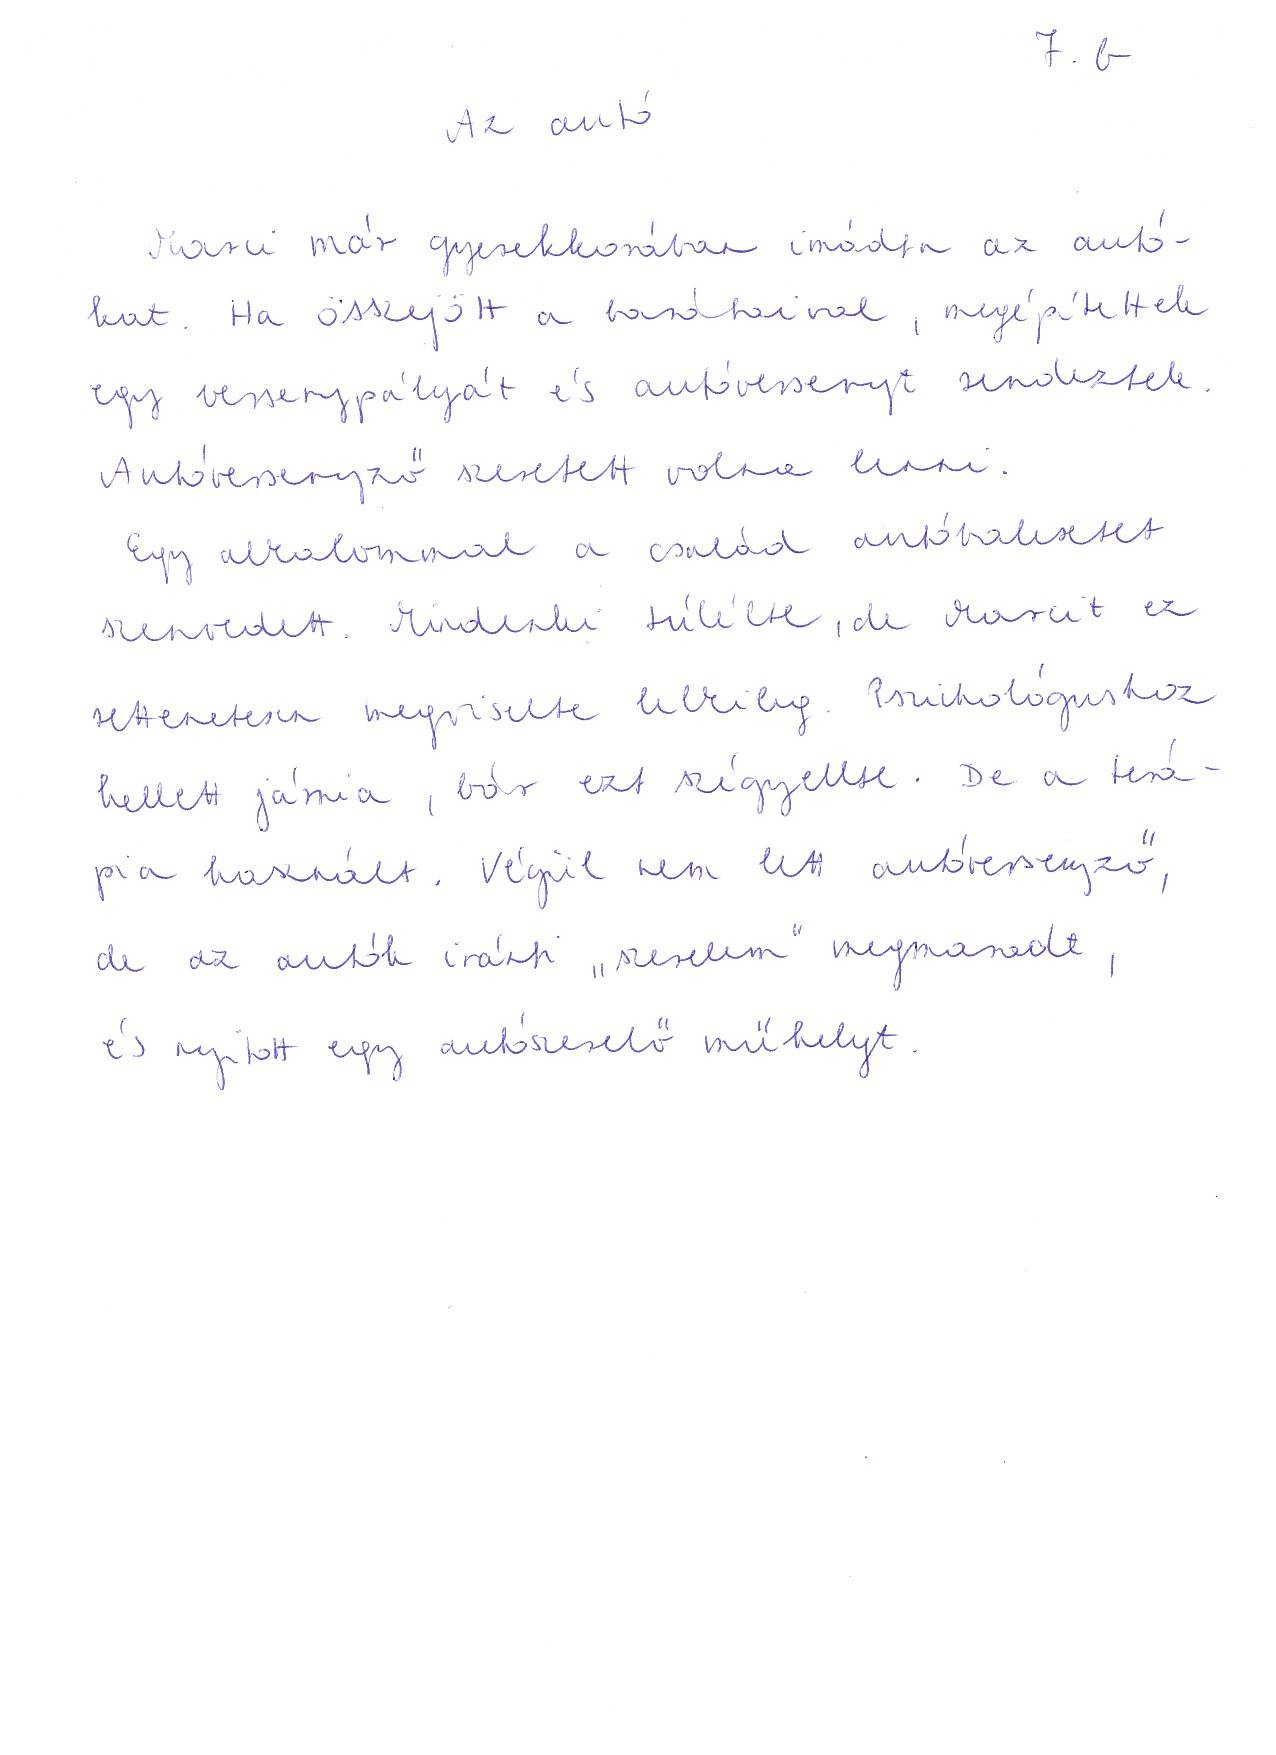 7. b
Az autó
Marci már gyerekkorában imádta az autó-
kat. Ha összejött a barátaival, megépítettek
egy versenypályát és autóversenyt rendeztek.
Autóversenyző szeretett volna lenni.
Egy alkalommal a család autóbalesetet
szenvedett. Mindenki túlélte, de Marcit ez
rettenetesen megviselte lelkileg. Pszichológushoz
kellett járnia, bár ezt szégyellte. De a terá-
pia használt. Végül nem lett autóversenyző,
de az autók iránti „szerelem" megmaradt,
és nyitott egy autószerelő műhelyt.